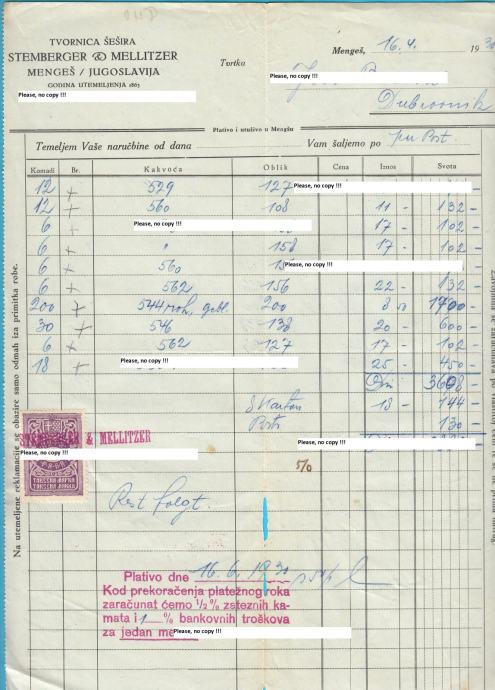 TVORNICA ŠEŠIRA
STEMBERGER & MELLITZER
MENGEŠ / JUGOSLAVIJA
GODINA UTEMELJENJA 1863
Please, no copy !!!
Tvrtka
Mengeš, 16.4. 1930
Please, no copy !!!
Dubrovnik
Plativo i utuživo u Mengšu
Temeljem Vaše naručbine od dana
Vam šaljemo po per Post.
Komadi Br. Kakvoća Oblik Cena Iznos Svota
12 + 529 127 Please, no copy !!!
12 + 560 108 11 - 132 -
6 + Please, no copy !!! 17 - 102 -
6 + " 158 17 - 102 -
6 + 560 Please, no copy !!!
6 + 562 156 22 - 132 -
200 + 544 200 8 50 1700 -
30 + 546 138 20 - 600 -
6 + 562 127 17 - 102 -
18 + Please, no copy !!! 25 - 450 -
Din 3608 -
8 Karton 18 - 144 -
Porto 130 -
STEMBERGER & MELLITZER
Please, no copy !!!
Please, no copy !!!
5/0
Rest folgt.
Plativo dne 16.6.1930
Kod prekoračenja platežnog roka
zaračunat ćemo ½ % zateznih ka-
mata i 1 % bankovnih troškova
za jedan me Please, no copy !!!
Na utemeljene reklamacije se obazire samo odmah iza primitka robe.